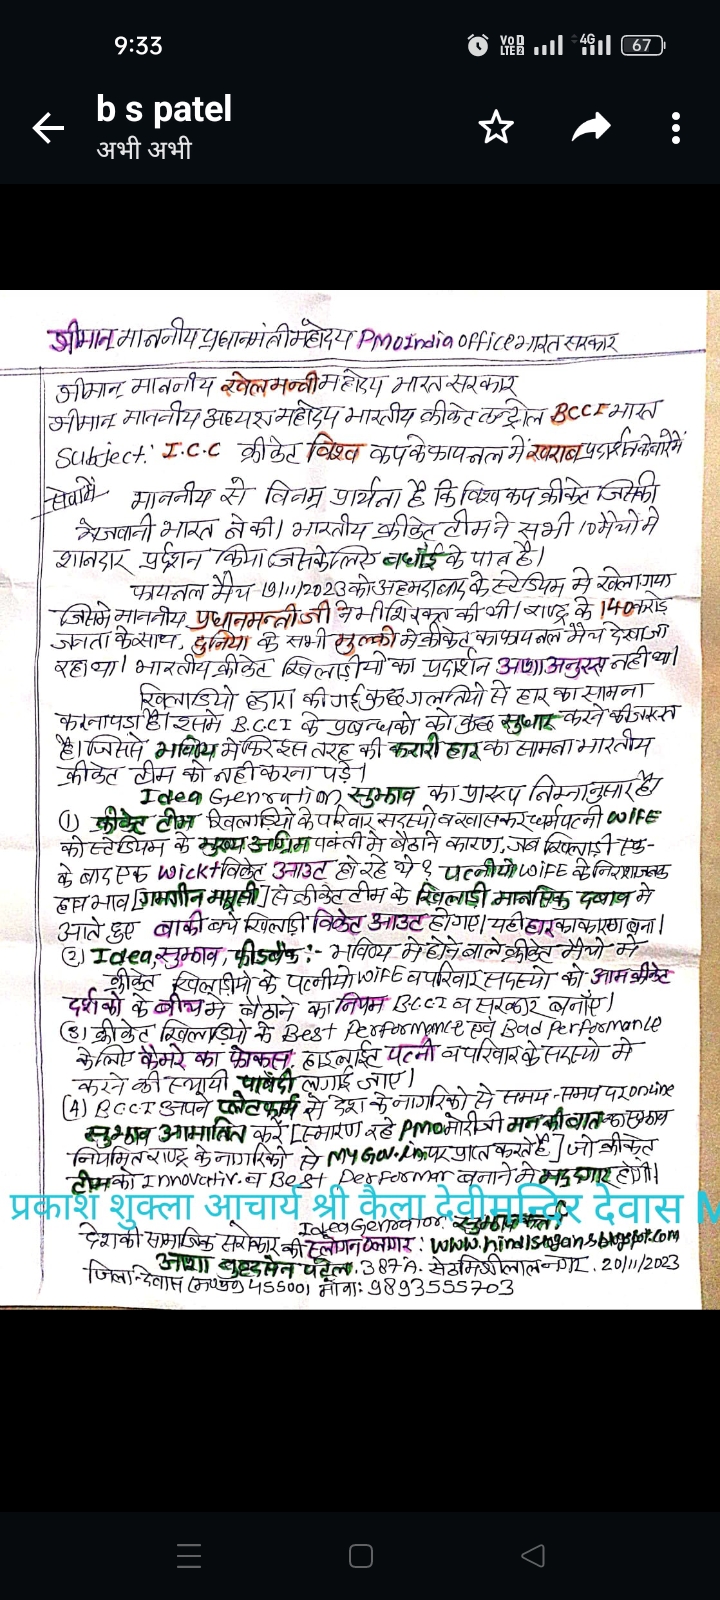 9:33
VoD LTE2 4G 67
b s patel
अभी अभी
श्रीमान् माननीय प्रधानमंत्री महोदय PMOIndia office भारत सरकार
श्रीमान् माननीय खेलमन्त्री महोदय भारत सरकार
श्रीमान् माननीय अध्यक्ष महोदय भारतीय क्रीकेट कन्ट्रोल BCCI भारत
Subject: I.C.C क्रीकेट विश्व कप के फायनल में खराब प्रदर्शन के बारे में
सेवामें माननीय से विनम्र प्रार्थना है कि विश्व कप क्रीकेट जिसकी
मेजवानी भारत ने की। भारतीय क्रीकेट टीम ने सभी 10 मैचो मे
शानदार प्रर्दशन किया जिसके लिए बधाई के पात्र है।
फायनल मैच 19/11/2023 को अहमदाबाद के स्टेडियम मे खेला गया
जिसमे माननीय प्रधानमन्त्री जी ने भी शिरकत की थी। राष्ट्र के 140 करोड़
जनता के साथ, दुनिया के सभी मुल्को मे क्रीकेट का फायनल मैच देखा जा
रहा था। भारतीय क्रीकेट खिलाड़ीयो का प्रदर्शन आशा अनुरूप नही था।
खिलाडियो द्वारा की गई कुछ गलतियो से हार का सामना
करना पडा है। इसमे B.C.C.I के प्रबन्धको को कुछ सुधार करने की जरूरत
है। जिससे भविष्य मे फिर इस तरह की करारी हार का सामना भारतीय
क्रीकेट टीम को नही करना पड़े।
Idea Genration सुझाव का प्रारूप निम्नानुसार है।
(1) क्रीकेट टीम खिलाडियो के परिवार सदस्यो व खासकर धर्मपत्नी WIFE
को स्टेडियम के मुख्य अग्रिम पक्ती मे बैठाने कारण, जब खिलाड़ी एक-
के बाद एक Wickt विकेट आउट हो रहे थे? पत्नीयो WIFE के निराशाजनक
हाव भाव [गमगीन मायूसी] से क्रीकेट टीम के खिलाडी मानसिक दबाव मे
आते हुए बाकी बचे खिलाड़ी विकेट आउट हो गए। यही हार का कारण बना।
(2) Idea, सुझाव, फीडबैक:- भविष्य मे होने वाले क्रीकेट मैचो मे
क्रीकेट खिलाड़ीयो के पत्नीयो WIFE व परिवार सदस्यो को आम क्रीकेट
दर्शको के बीच मे बैठाने का नियम BCCI व सरकार बनाएं।
(3) क्रीकेट खिलाडियो के Best Performance एवं Bad Performance
के लिए कैमरे का फोकस, हाइलाईट पत्नी व परिवार के सदस्यो मे
करने की स्थायी पाबंदी लगाई जाए।
(4) BCCI अपने प्लेटफार्म से देश के नागरिको से समय-समय पर online
सुझाव आमंत्रित करें [स्मारण रहे PMO मोदीजी मन की बात का सुझाव
नियमित राष्ट्र के नागरिको से MyGov.in पर प्राप्त करते है] जो क्रीकेट
टीम को Innovativ व Best Performar बनाने मे मददगार होगी।
प्रकाश शुक्ला आचार्य श्री कैला देवी मन्दिर देवास M
Idea Genrator सुझावकर्ता
देश की सामाजिक सरोकार की स्लोगन ब्लागर: www.hindislogans.blogspot.com
आशा बृहदसेन पटेल. 387A. सेठमिश्रीलाल नगर. 20/11/2023
जिला-देवास (म०प्र०) 455001 मोबा: 9893555703